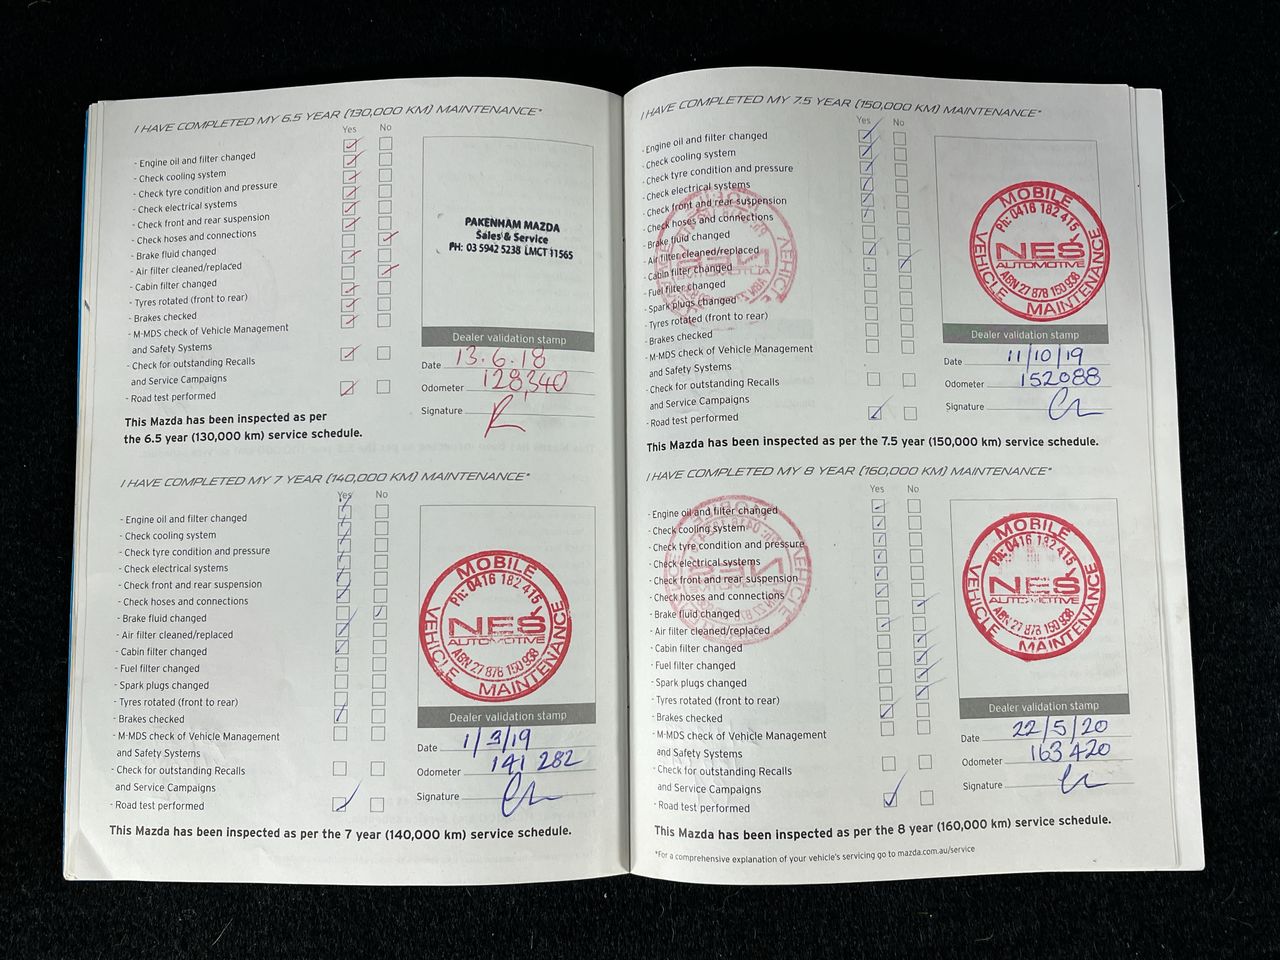 I HAVE COMPLETED MY 6.5 YEAR (130,000 KM) MAINTENANCE*
Yes No
- Engine oil and filter changed
- Check cooling system
- Check tyre condition and pressure
- Check electrical systems
- Check front and rear suspension
- Check hoses and connections
- Brake fluid changed
- Air filter cleaned/replaced
- Cabin filter changed
- Tyres rotated (front to rear)
- Brakes checked
- M-MDS check of Vehicle Management
and Safety Systems
- Check for outstanding Recalls
and Service Campaigns
- Road test performed
PAKENHAM MAZDA
Sales & Service
PH: 03 5942 5238 LMCT 11565
Dealer validation stamp
Date 13.6.18
Odometer 128,340
Signature
This Mazda has been inspected as per
the 6.5 year (130,000 km) service schedule.
I HAVE COMPLETED MY 7 YEAR (140,000 KM) MAINTENANCE*
Yes No
- Engine oil and filter changed
- Check cooling system
- Check tyre condition and pressure
- Check electrical systems
- Check front and rear suspension
- Check hoses and connections
- Brake fluid changed
- Air filter cleaned/replaced
- Cabin filter changed
- Fuel filter changed
- Spark plugs changed
- Tyres rotated (front to rear)
- Brakes checked
- M-MDS check of Vehicle Management
and Safety Systems
- Check for outstanding Recalls
and Service Campaigns
- Road test performed
MOBILE
Ph: 0416 182 415
NES
AUTOMOTIVE
ABN 27 878 150 938
VEHICLE MAINTENANCE
Dealer validation stamp
Date 1/3/19
Odometer 141 282
Signature
This Mazda has been inspected as per the 7 year (140,000 km) service schedule.
I HAVE COMPLETED MY 7.5 YEAR (150,000 KM) MAINTENANCE*
Yes No
- Engine oil and filter changed
- Check cooling system
- Check tyre condition and pressure
- Check electrical systems
- Check front and rear suspension
- Check hoses and connections
- Brake fluid changed
- Air filter cleaned/replaced
- Cabin filter changed
- Fuel filter changed
- Spark plugs changed
- Tyres rotated (front to rear)
- Brakes checked
- M-MDS check of Vehicle Management
and Safety Systems
- Check for outstanding Recalls
and Service Campaigns
- Road test performed
MOBILE
Ph: 0416 182 415
NES
AUTOMOTIVE
ABN 27 878 150 938
VEHICLE MAINTENANCE
Dealer validation stamp
Date 11/10/19
Odometer 152088
Signature
This Mazda has been inspected as per the 7.5 year (150,000 km) service schedule.
I HAVE COMPLETED MY 8 YEAR (160,000 KM) MAINTENANCE*
Yes No
- Engine oil and filter changed
- Check cooling system
- Check tyre condition and pressure
- Check electrical systems
- Check front and rear suspension
- Check hoses and connections
- Brake fluid changed
- Air filter cleaned/replaced
- Cabin filter changed
- Fuel filter changed
- Spark plugs changed
- Tyres rotated (front to rear)
- Brakes checked
- M-MDS check of Vehicle Management
and Safety Systems
- Check for outstanding Recalls
and Service Campaigns
- Road test performed
MOBILE
Ph: 0416 182 415
NES
AUTOMOTIVE
ABN 27 878 150 938
VEHICLE MAINTENANCE
Dealer validation stamp
Date 22/5/20
Odometer 163 420
Signature
This Mazda has been inspected as per the 8 year (160,000 km) service schedule.
*For a comprehensive explanation of your vehicle's servicing go to mazda.com.au/service